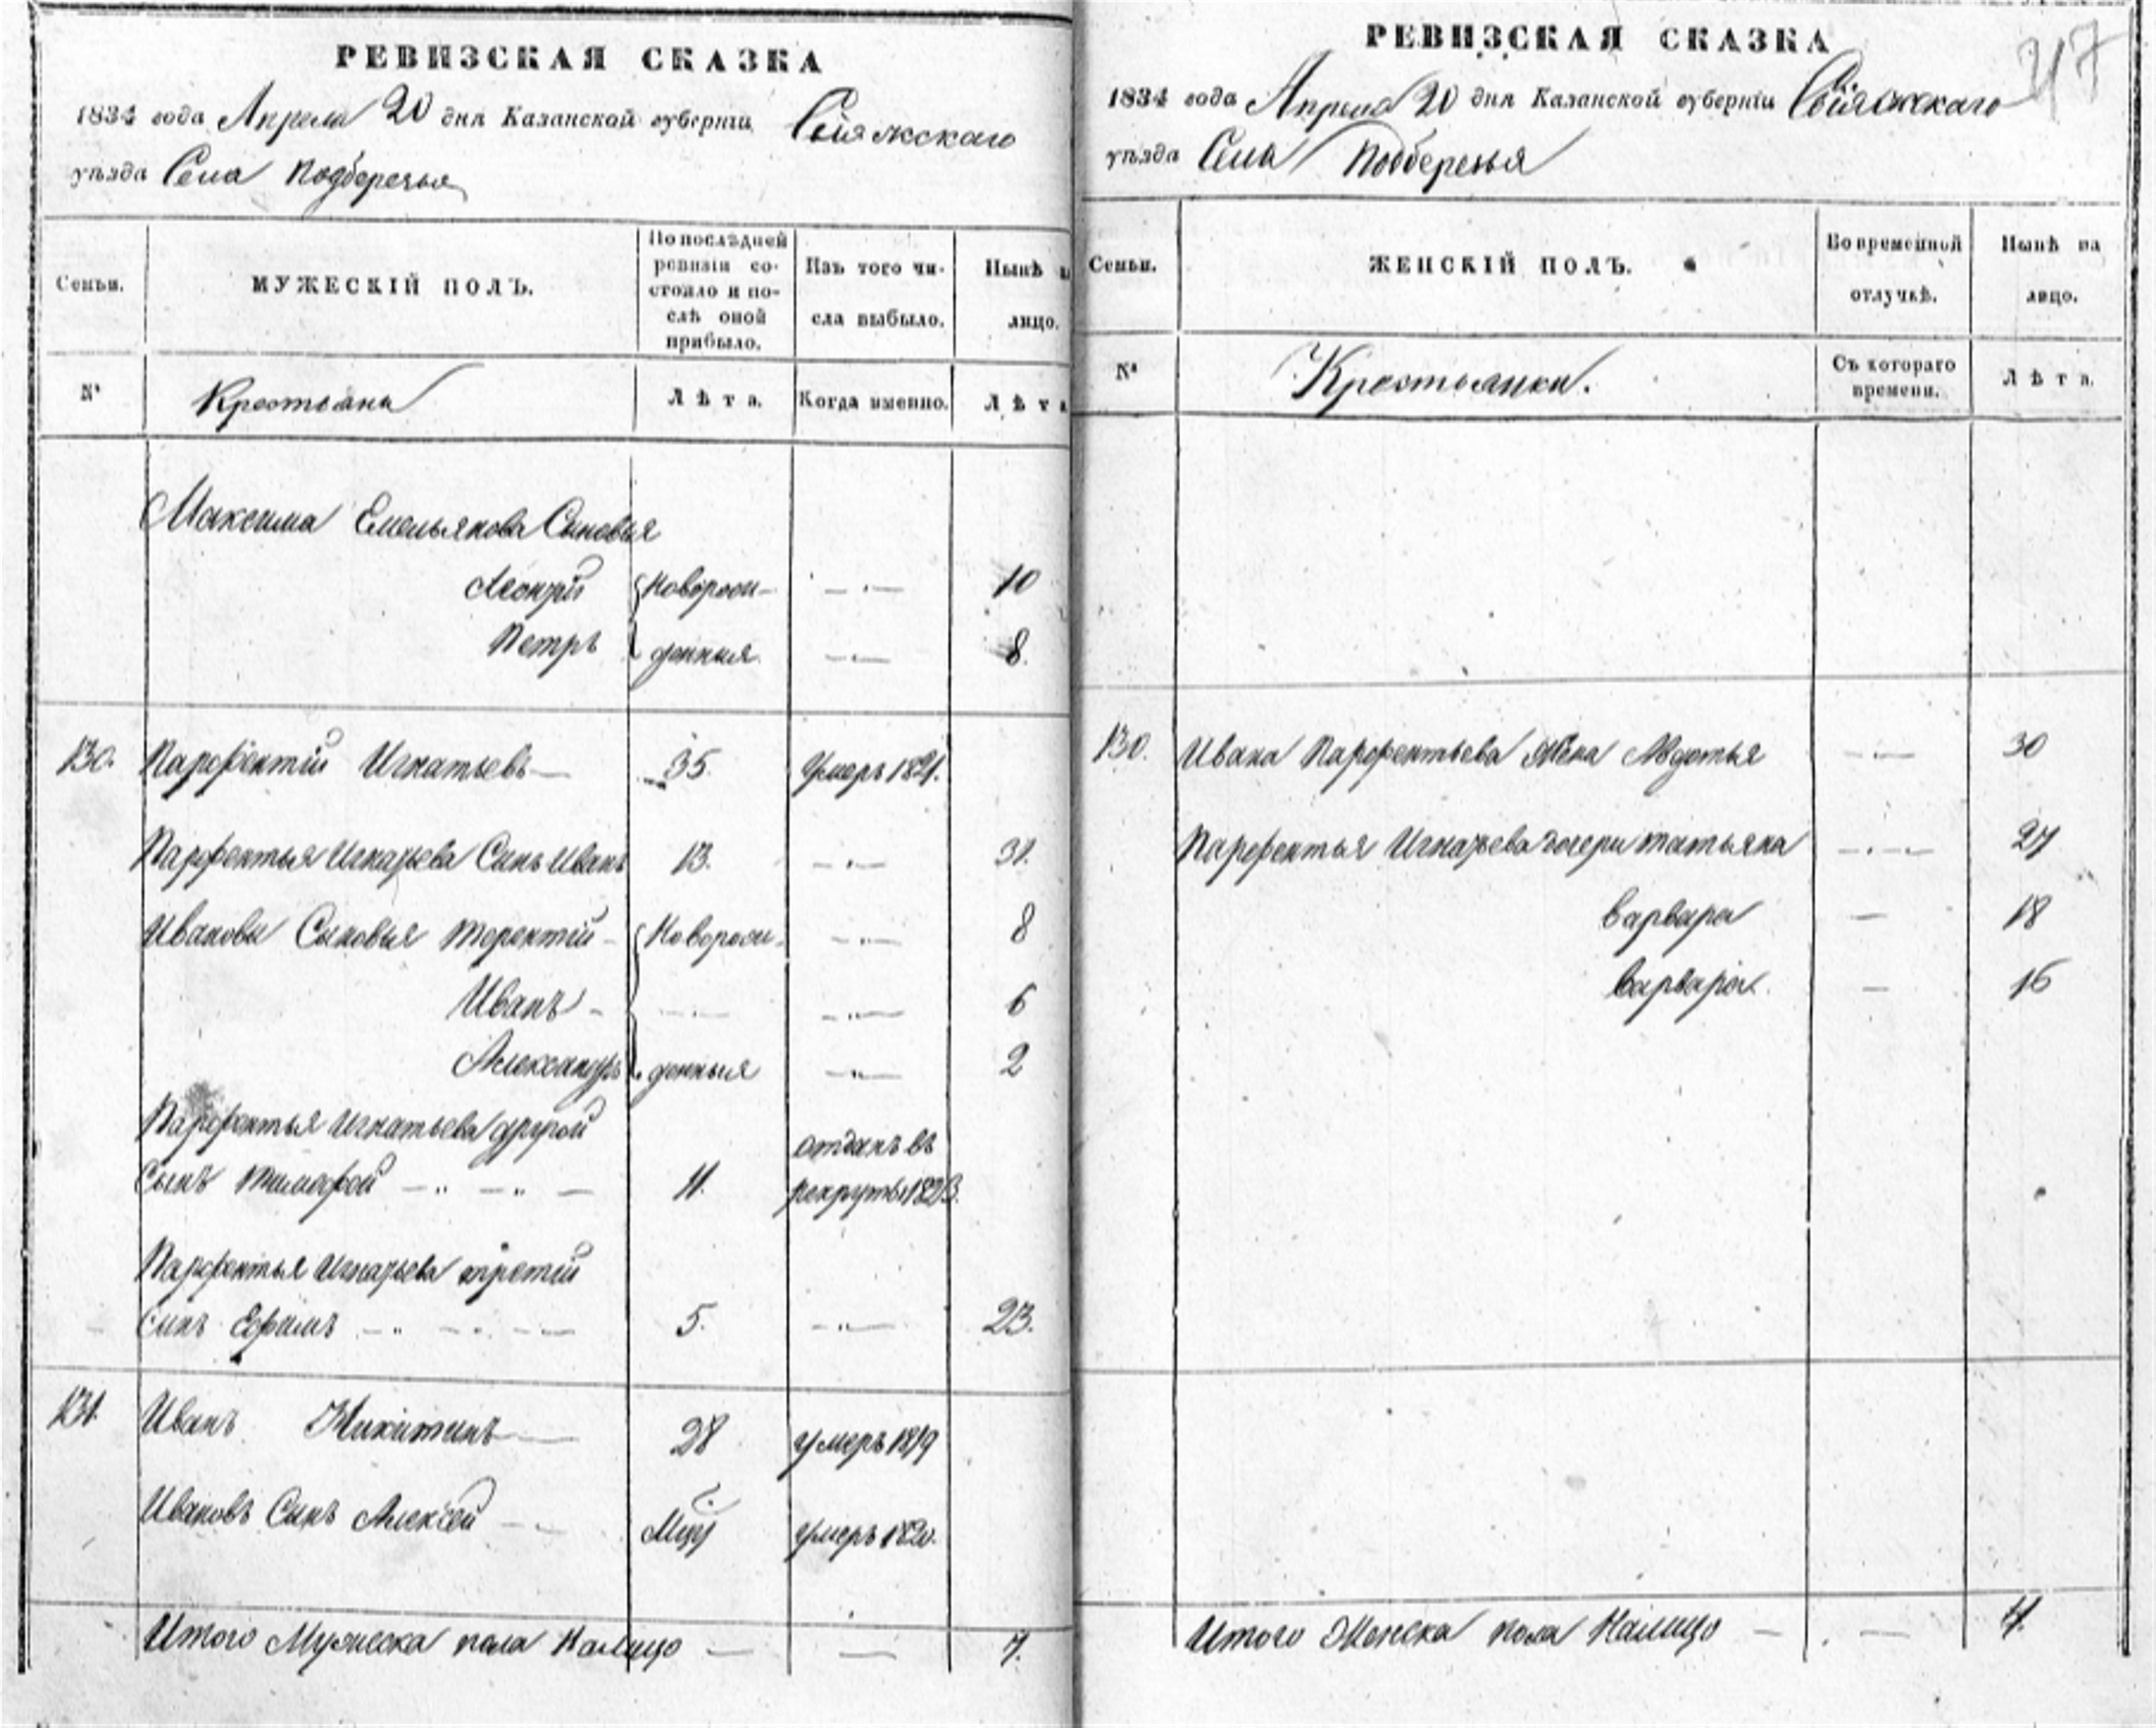 РЕВИЗСКАЯ СКАЗКА
1834 года Апреля 20 дня Казанской губерніи Свіяжскаго
уѣзда Села Подберезья
Семьи.
МУЖЕСКІЙ ПОЛЪ.
По послѣдней ревизіи со-
стояло и по-
слѣ оной
прибыло.
Изъ того чи-
сла выбыло.
Нынѣ
лицо.
№
Крестьяне
Лѣта.
Когда именно.
Лѣта
Максима Емельянова Сыновья
Андрей Новорож- 10
Петръ денныя 8.
130. Парфентій Игнатьевъ 35 умеръ 1821.
Парфентья Игнатьева Сынъ Иванъ 13. 31.
Ивановы Сыновья Терентій Новорож- 8
Иванъ 6
Александръ денныя 2
Парфентья Игнатьева другой отданъ въ
Сынъ Тимофей 11. рекруты 1823.
Парфентья Игнатьева третій
сынъ Ефимъ 5. 23.
131. Иванъ Никитинъ 28 умеръ 1819
Ивановъ Сынъ Алексей умеръ 1820.
Итого Мужеска пола Налицо 7.
217
РЕВИЗСКАЯ СКАЗКА
1834 года Апреля 20 дня Казанской губерніи Свіяжскаго
уѣзда Села Подберезья
Семьи.
ЖЕНСКІЙ ПОЛЪ.
Во временной
отлучкѣ.
Нынѣ на
лицо.
№
Крестьянки.
Съ котораго
времени.
Лѣта.
130. Ивана Парфентьева Жена Авдотья 30
Парфентья Игнатьева дочери Татьяна 27
Варвара 18
Варвара 16
Итого Женска пола Налицо 4.